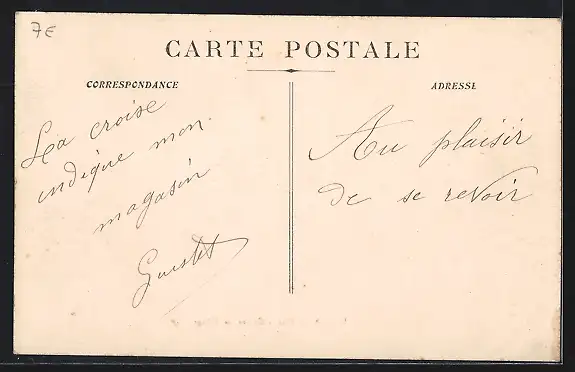 7E
CARTE POSTALE
CORRESPONDANCE
ADRESSE
La croise
indique mon
magasin
Au plaisir
de se revoir